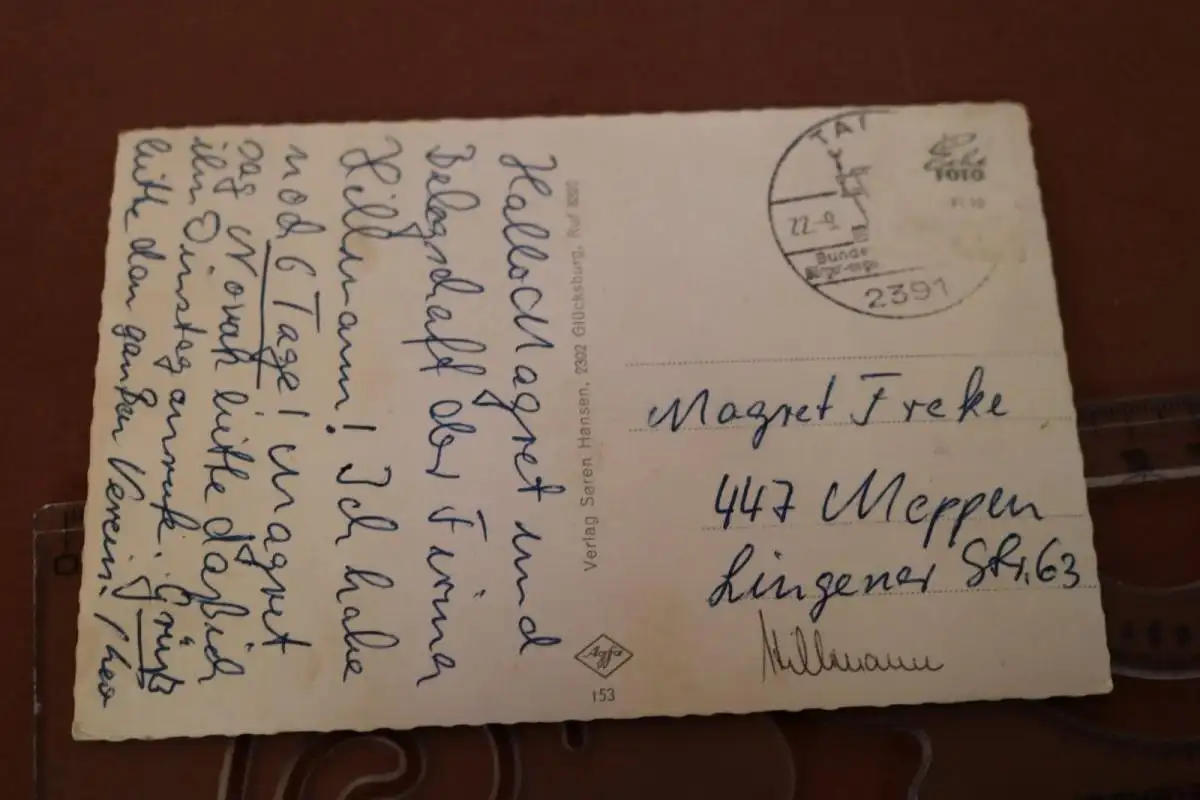 Hallo Magret und
Belegschaft der Firma
Hillmann! Ich habe
noch 6 Tage! Magret
sag Novak bitte daß ich
ihn Dinstag anrufe. Grüß
bitte den ganzen Verein. Theo
Verlag Søren Hansen, 2392 Glücksburg, Ruf 8280
153
TAT
22.-6
Bundes
2391
FOTO
Magret Freke
447 Meppen
Lingener Str. 63
Hillmann